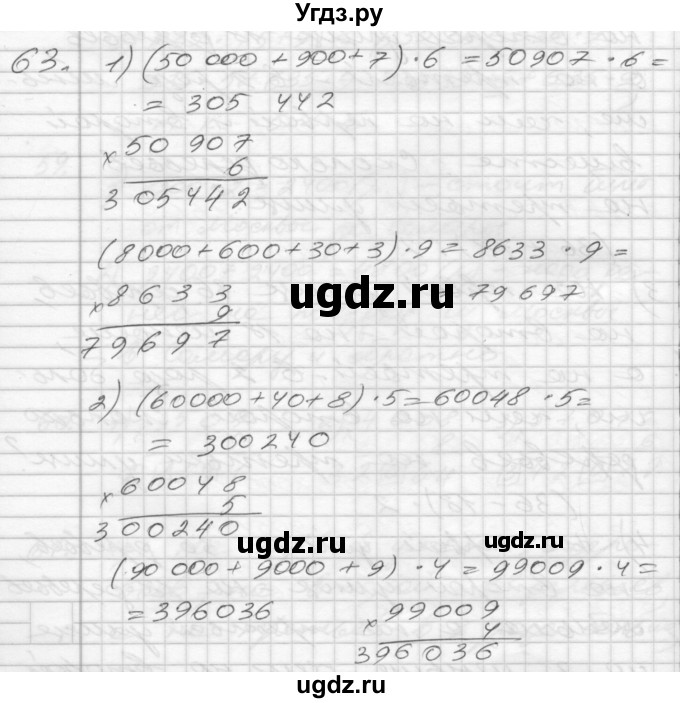 Угдз.ру
63. 1) (50 000 + 900 + 7) · 6 = 50907 · 6 =
= 305 442
x 50 907
6
3 05442
(8000 + 600 + 30 + 3) · 9 = 8633 · 9 =
= 79 697
x 8633
9
79697
ugdz.ru
2) (60000 + 40 + 8) · 5 = 60048 · 5 =
= 300240
x 60048
5
300240
ugdz.ru
ugdz.ru
(90 000 + 9000 + 9) · 4 = 99009 · 4 =
= 396036
x 99009
4
396036
ugdz.ru
ugdz.ru